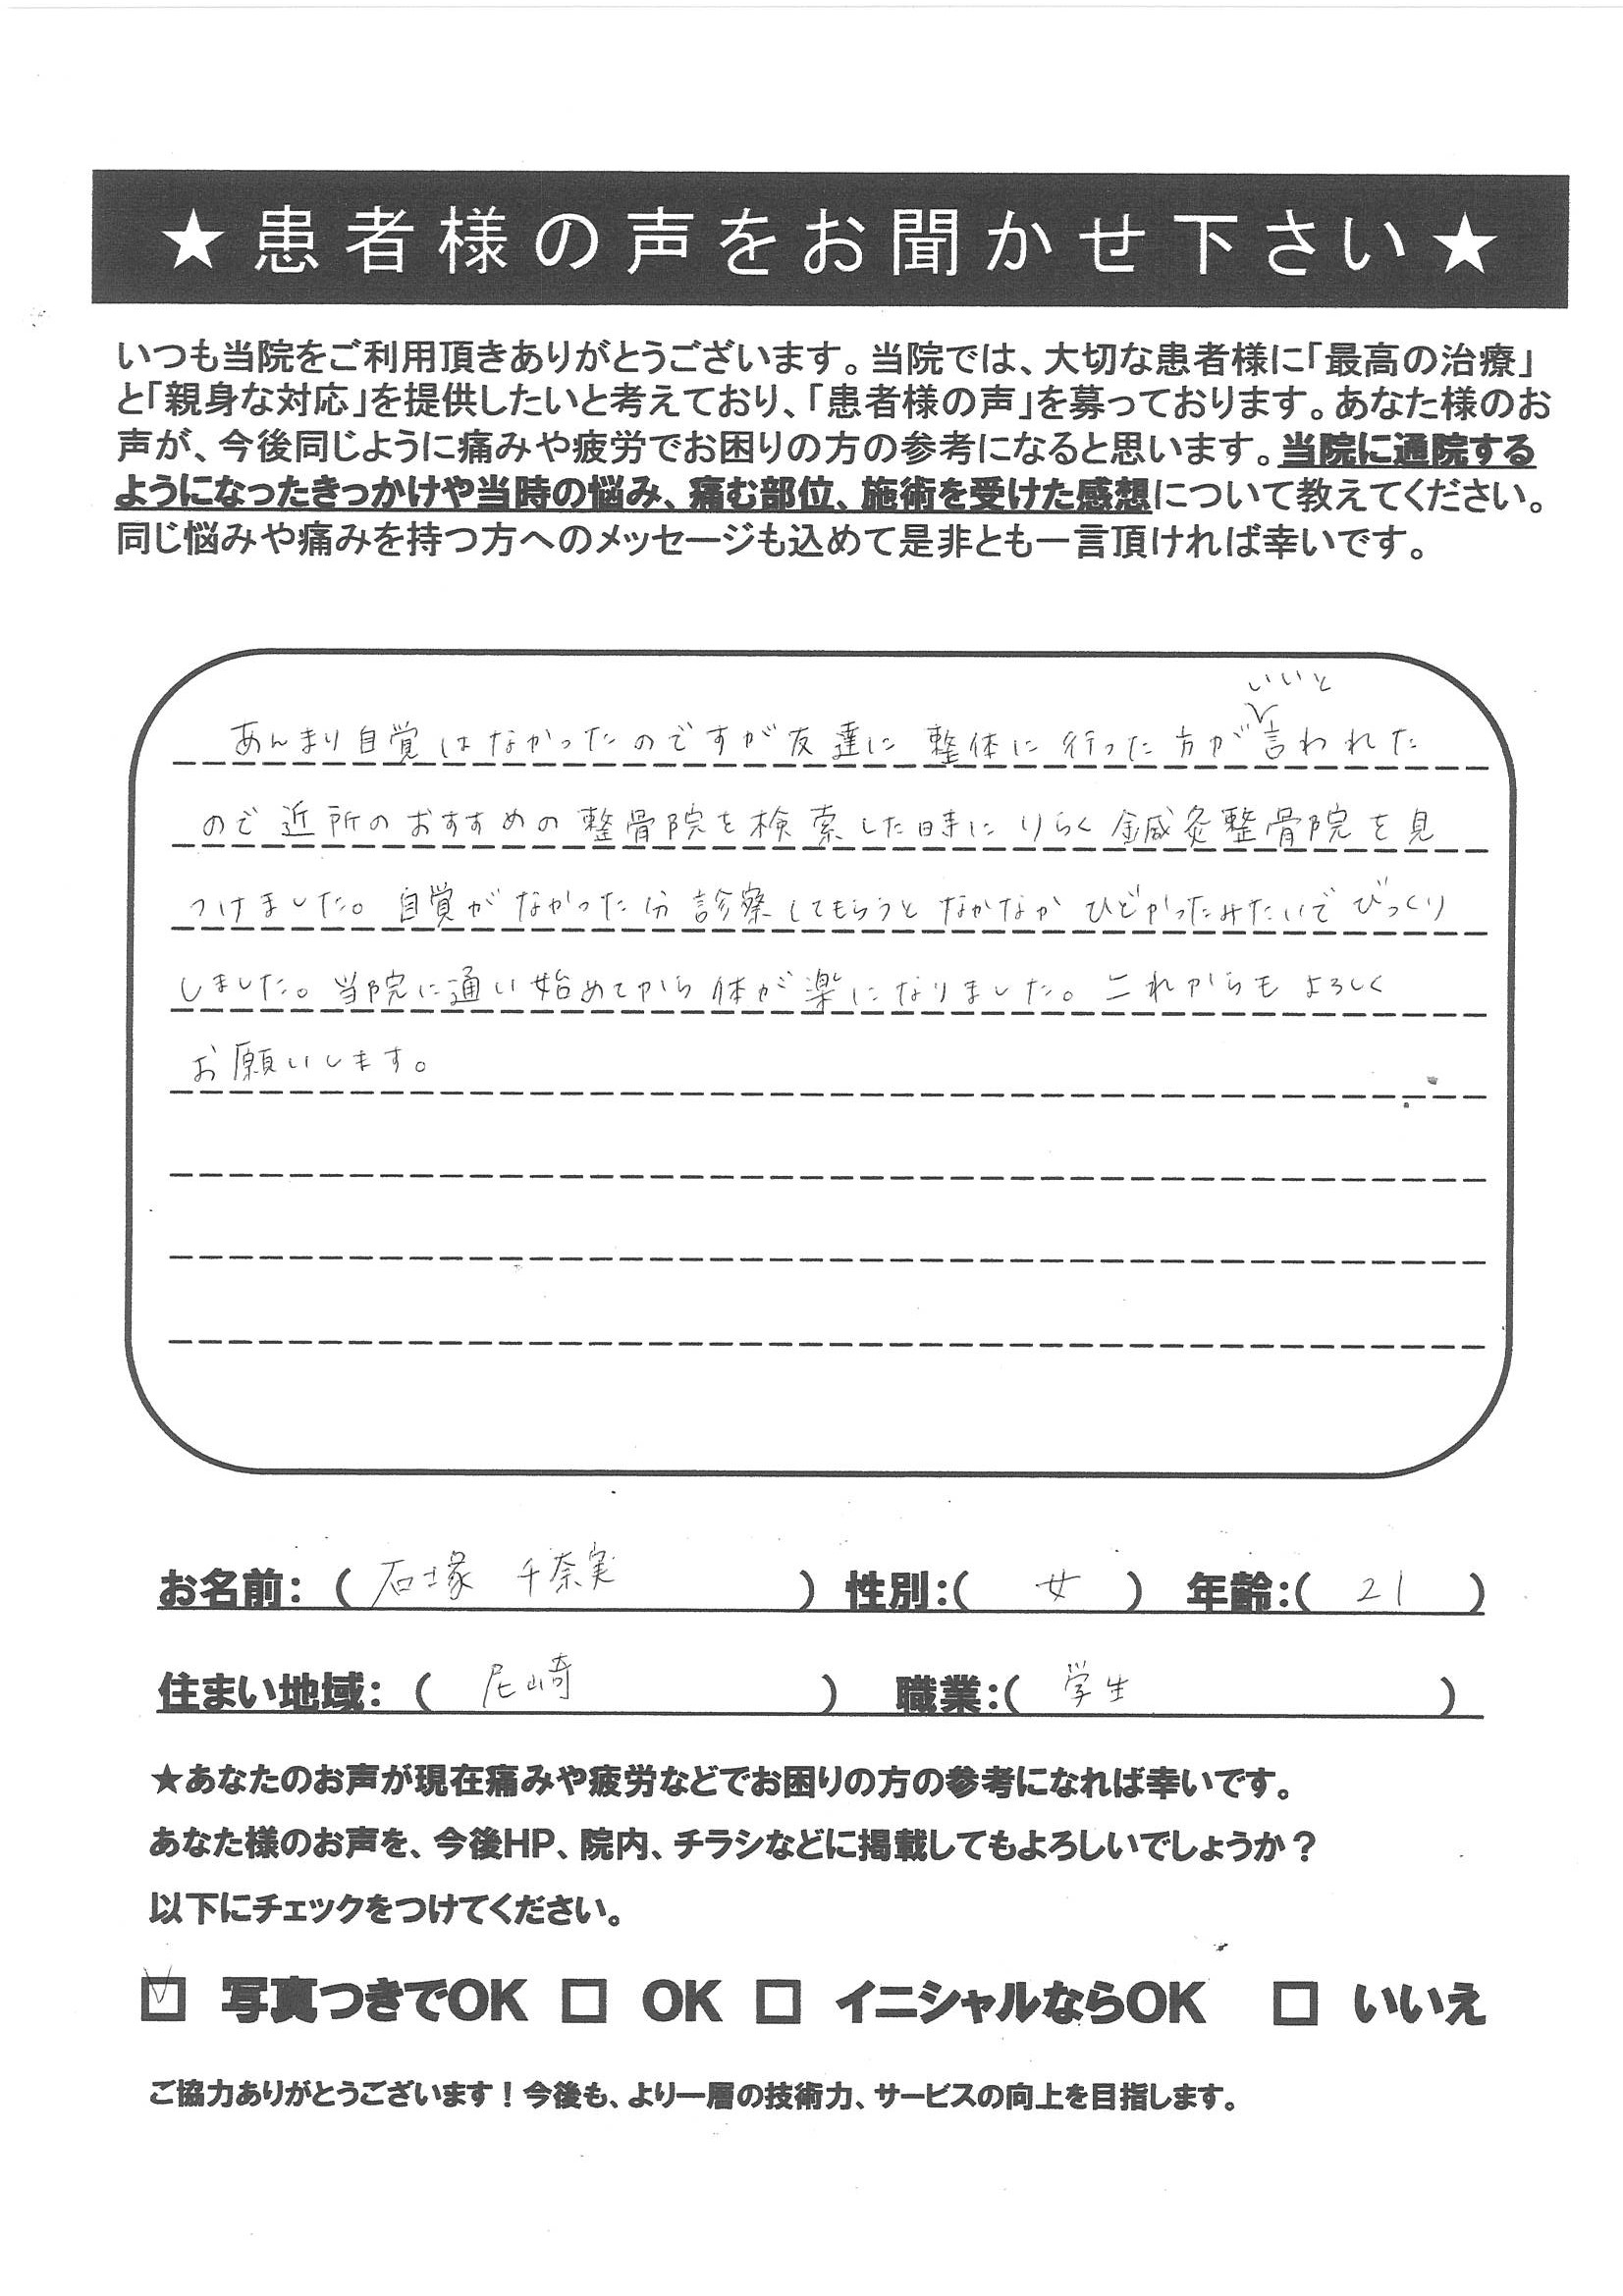 ★患者様の声をお聞かせ下さい★
いつも当院をご利用頂きありがとうございます。当院では、大切な患者様に「最高の治療」
と「親身な対応」を提供したいと考えており、「患者様の声」を募っております。あなた様のお
声が、今後同じように痛みや疲労でお困りの方の参考になると思います。当院に通院する
ようになったきっかけや当時の悩み、痛む部位、施術を受けた感想について教えてください。
同じ悩みや痛みを持つ方へのメッセージも込めて是非とも一言頂ければ幸いです。
いいと
あんまり自覚はなかったのですが友達に整体に行った方が言われた
ので近所のおすすめの整骨院を検索した時にりらく鍼灸整骨院を見
つけました。自覚がなかった分診察してもらうとなかなかひどかったみたいでびっくり
しました。当院に通い始めてから体が楽になりました。これからもよろしく
お願いします。
お名前：（石塚 千奈実） 性別：（女） 年齢：（21）
住まい地域：（尼崎） 職業：（学生）
★あなたのお声が現在痛みや疲労などでお困りの方の参考になれば幸いです。
あなた様のお声を、今後HP、院内、チラシなどに掲載してもよろしいでしょうか？
以下にチェックをつけてください。
☑ 写真つきでOK □ OK □ イニシャルならOK □ いいえ
ご協力ありがとうございます！今後も、より一層の技術力、サービスの向上を目指します。